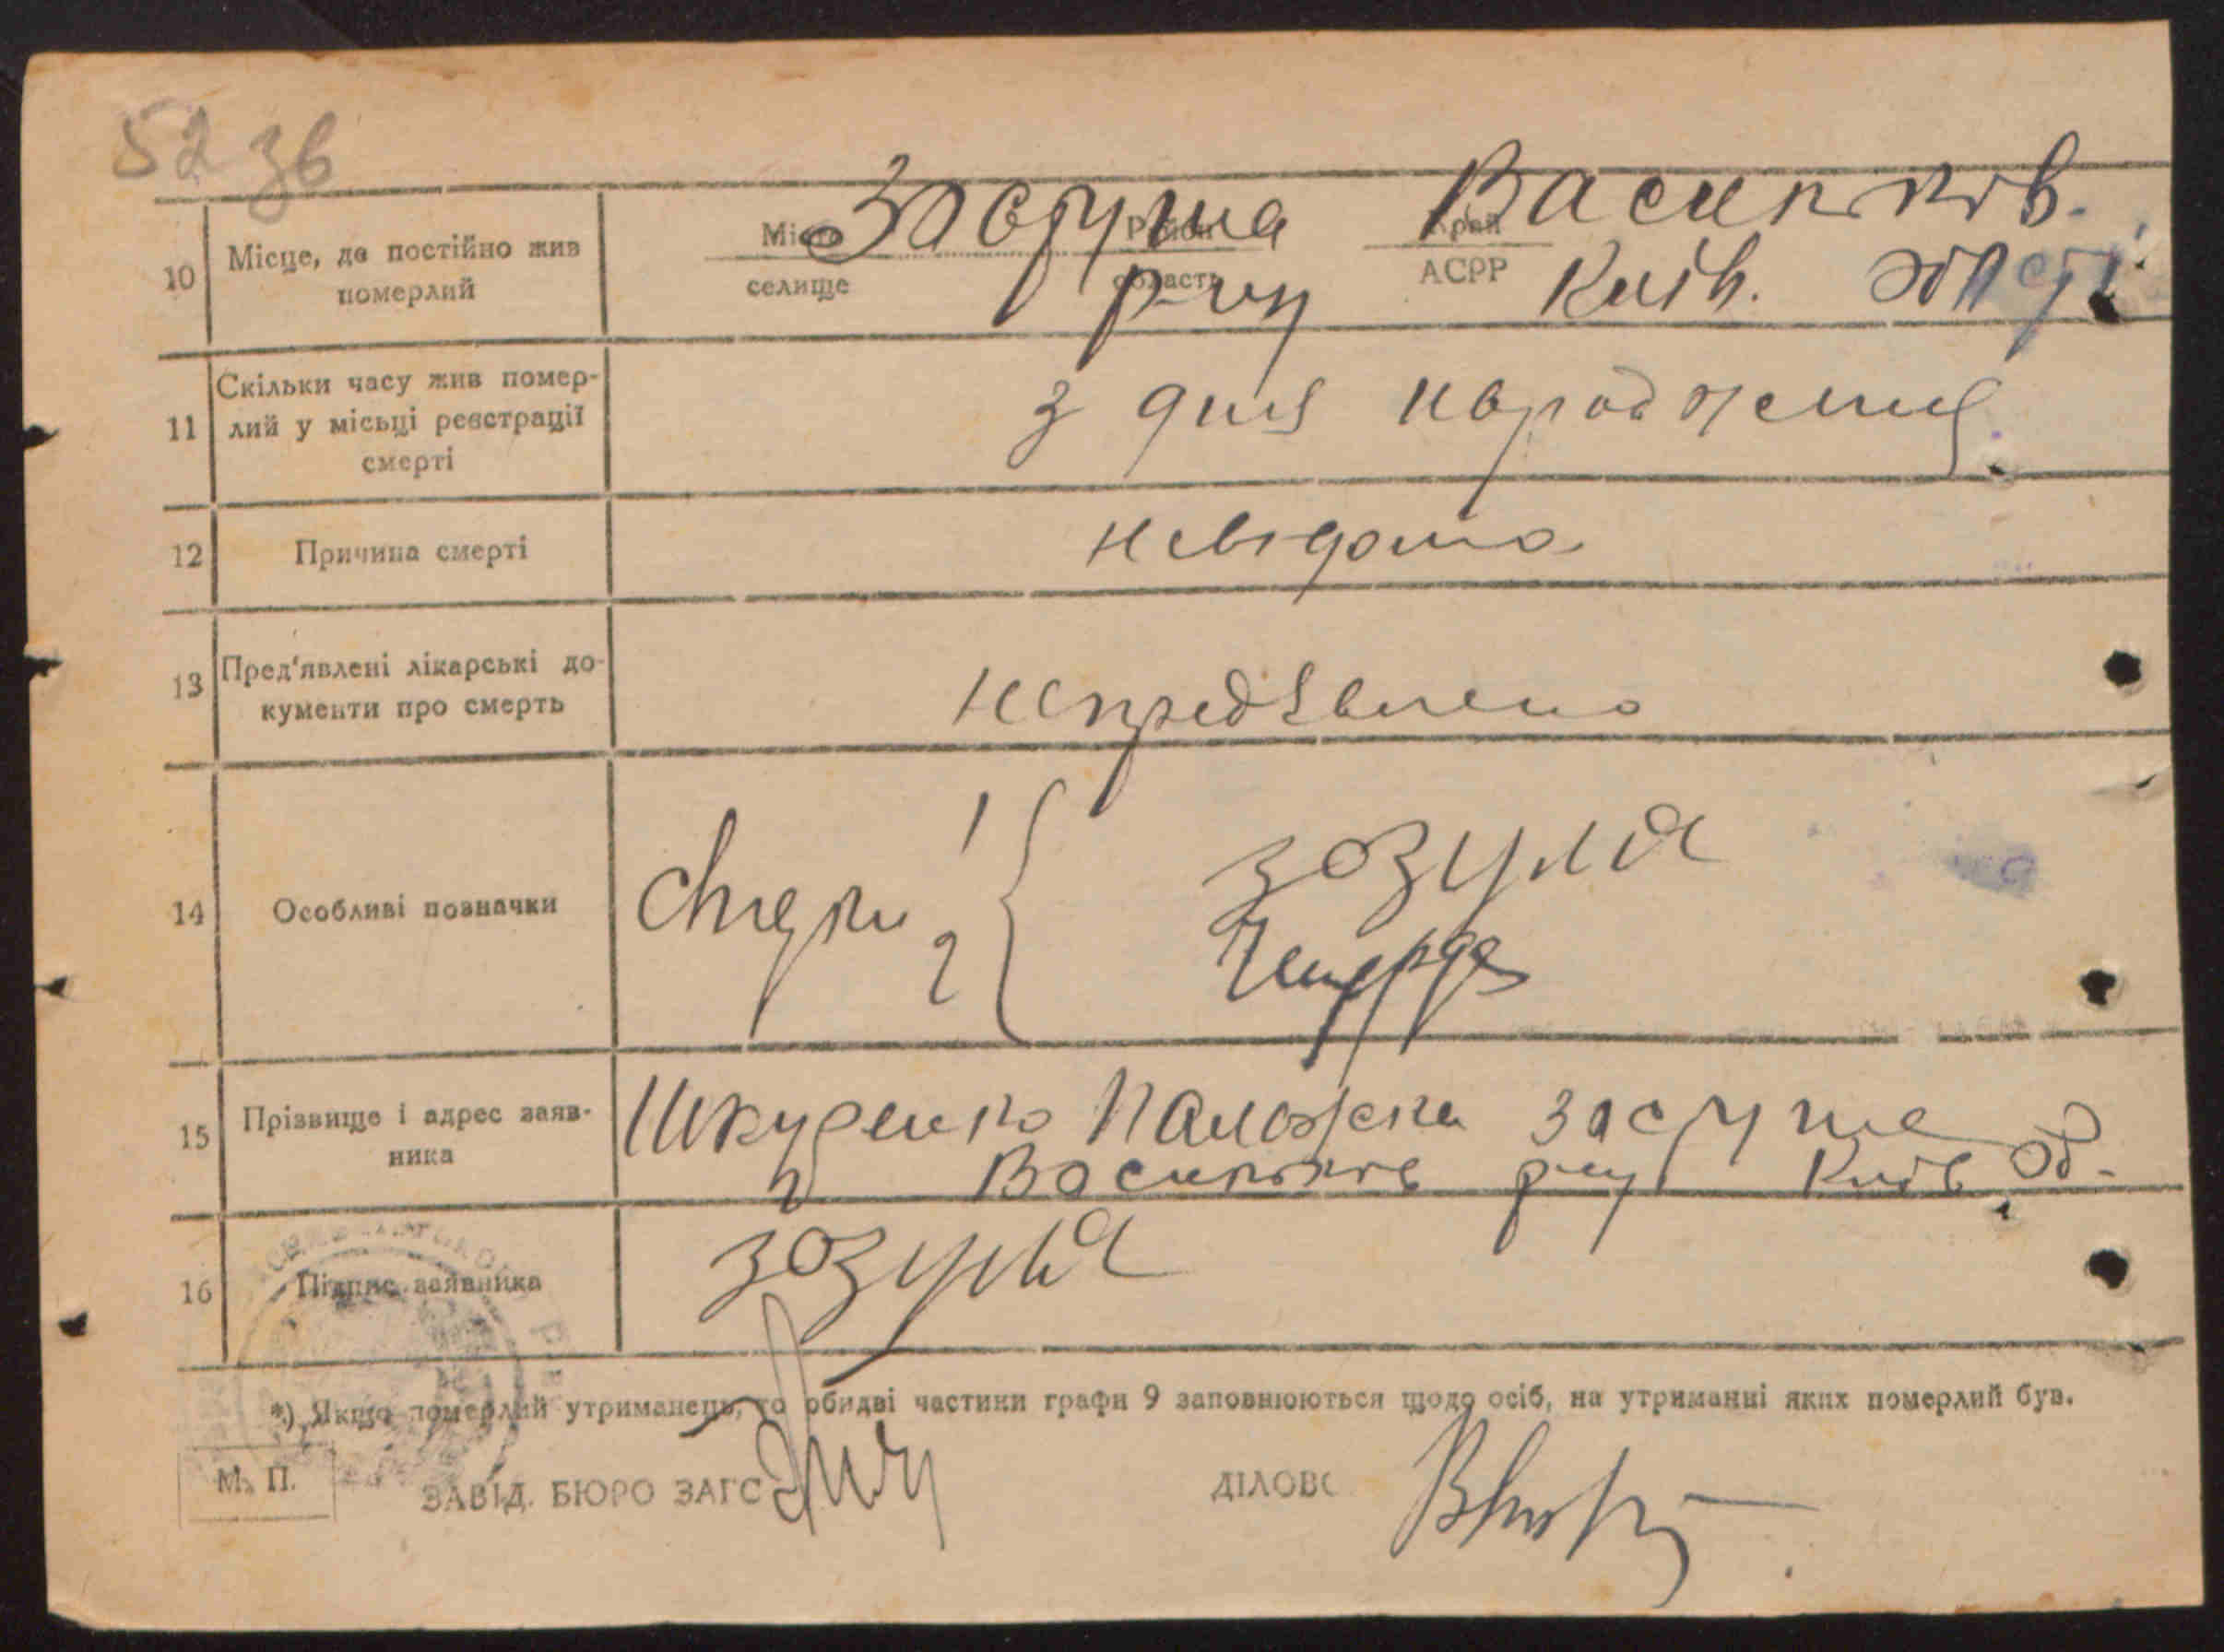 52 зв
10 Місце, де постійно жив померлий
Місто селище Район область Край АСРР
Застуга Васильків.
р-ну Київ. области
11 Скільки часу жив помер-
лий у місьці реєстрації
смерті
з дня народження
12 Причина смерті
невідома
13 Пред'явлені лікарські до-
кументи про смерть
непредявлено
14 Особливі позначки
1 зозуля
2
15 Прізвище і адрес заяв-
ника
Палажка
Васильків р-ну Київ об-
16 Підпис заявника
зозуля
*) Якщо померлий утриманець, то обидві частини графи 9 заповнюються щодо осіб, на утриманні яких померлий був.
М. П.
ЗАВІД. БЮРО ЗАГС ДІЛОВ